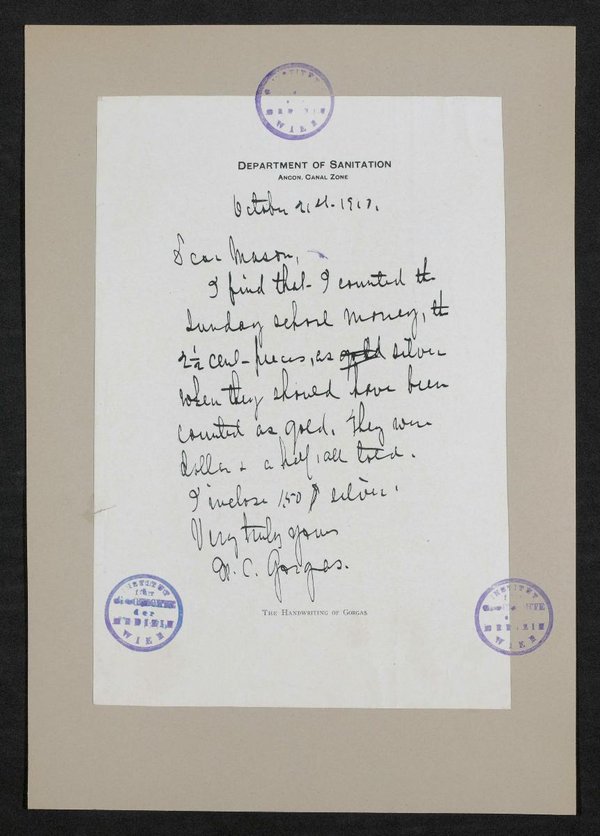 INSTITUT
WIEN
DEPARTMENT OF SANITATION
ANCON, CANAL ZONE
October 21st. 1913.
Dear Mason,
I find that I counted the
Sunday school money, the
2½ cent-pieces, as gold silver
when they should have been
counted as gold. They were
dollar & a half, all told.
I inclose 1.50 silver.
Very truly yours
W. C. Gorgas.
THE HANDWRITING OF GORGAS
INSTITUT
für
GESCHICHTE
der
MEDIZIN
WIEN
INSTITUT
GESCHICHTE
MEDIZIN
WIEN